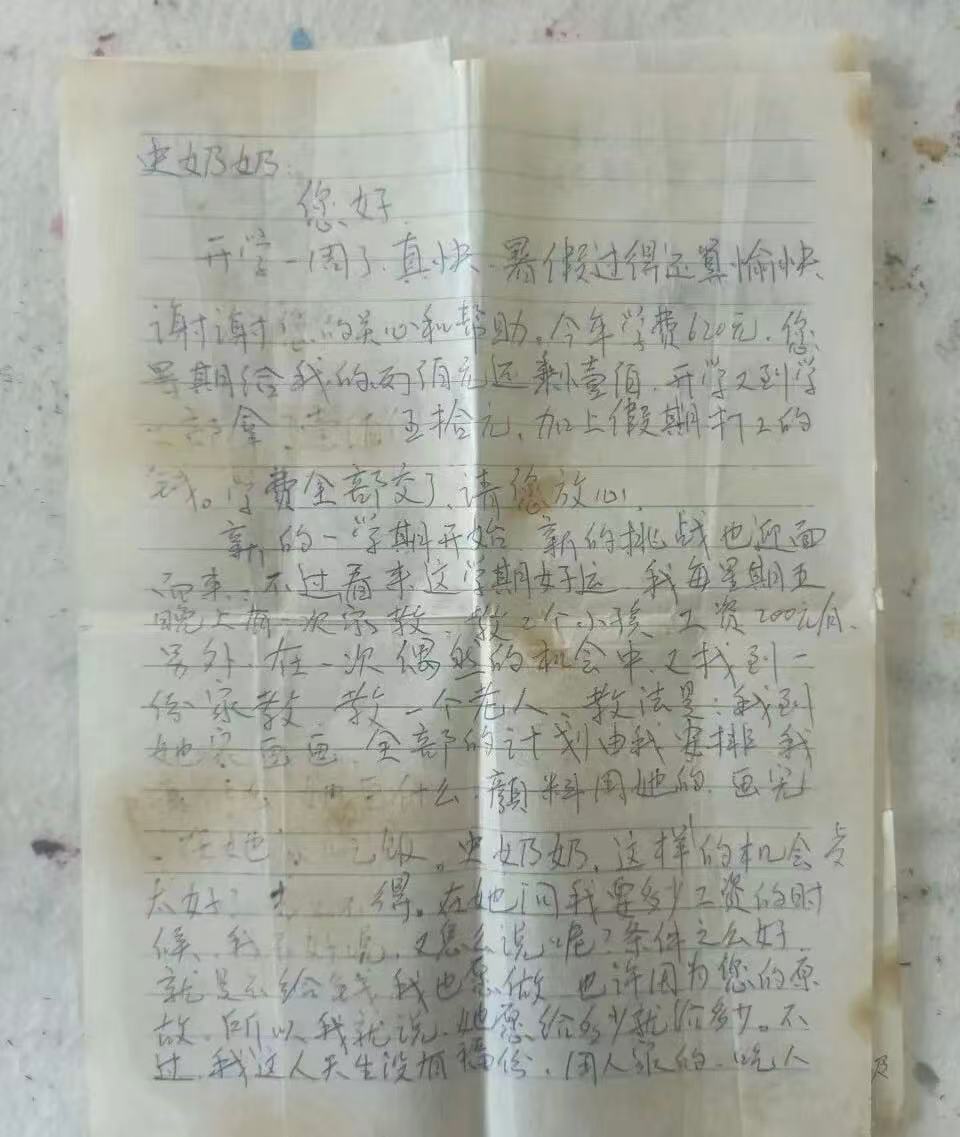 史奶奶:
您好
开学一周了,真快,暑假过得还算愉快
谢谢您的关心和帮助。今年学费620元,您
暑期给我的两佰元还剩壹佰,开学又到学
拿 伍拾元,加上假期打工的
钱。学费全部交了,请您放心,
新的一学期开始,新的挑战也迎面
而来,不过看来这学期好运,我每星期五
晚上有一次家教,教2个小孩,工资200元/月、
另外,在一次偶然的机会中,又找到一
份家教,教一个老人,教法是:我到
她家画画,全部的计划由我安排,我
什么,颜料用她的,画完
在她 吃饭。史奶奶,这样的机会
太好了 得。在她问我要多少工资的时
候,我 好说,又怎么说呢?条件之么好,
就是不给钱,我也愿做,也许因为您的原
故,所以我就说,她愿给多少就给多少。不
过,我这人天生没有福份,用人家的,吃人
及